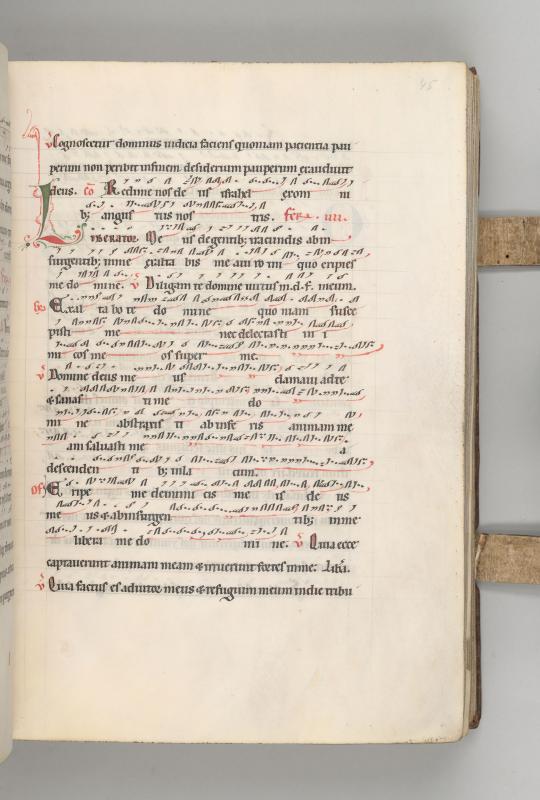 45
℣ Cognoscetur dominus iudicia faciens quoniam pacientia pau
perum non peribit infinem desiderium pauperum exaudiuit
deus. Co Redime nos de us israhel exom ni
bꝫ angus tiis nos tris. feria. iiii.
Liberator Me us degentibꝫ iracundis abin
surgentibꝫ inme exalta bis me a uiro ini quo eripies
me do mine. ℣ Diligam te domine uirtus m. d. f. meum.
Exal ta bo te do mine quoniam susce
pisti me nec delectasti in i
mi cos me os super me.
℣ Domine deus me us clamaui adte
& sanas ti me do
mi ne abstraxis ti abinfe ris animam me
am saluasti me a
descenden ti bꝫ inla cum.
Of Eripe me deinimi cis me is de us
me us & abinsurgen tibꝫ inme
libera me do mi ne. ℣ Quia ecce
captauerunt animam meam & irruerunt fortes inme. Libera.
℣ Quia factus es adiutor meus & refugium meum indie tribu